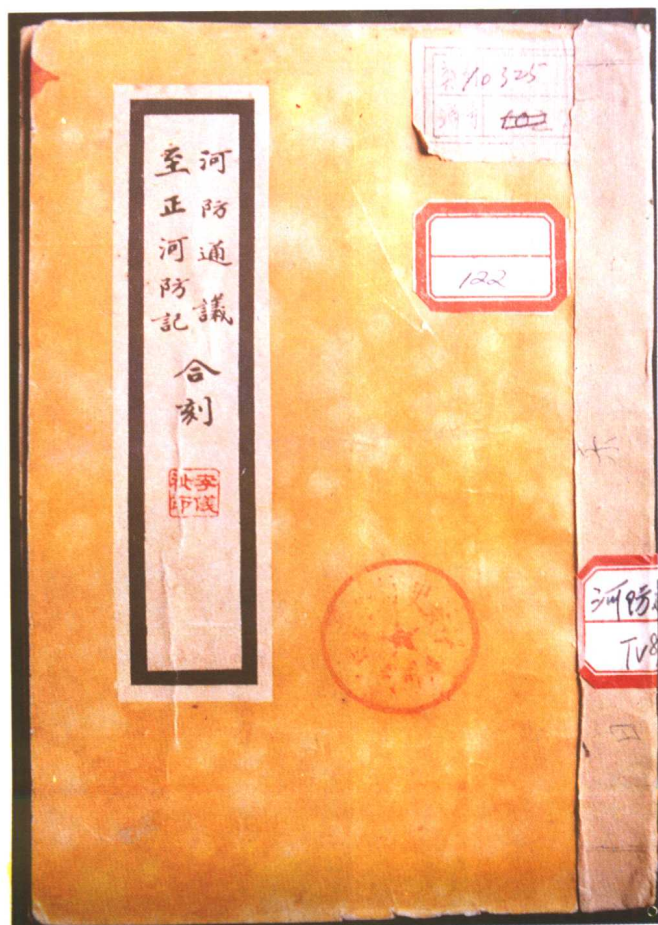 河防通議
至正河防記
合刻
李儀祉印
10325
102
122
河防
TV8